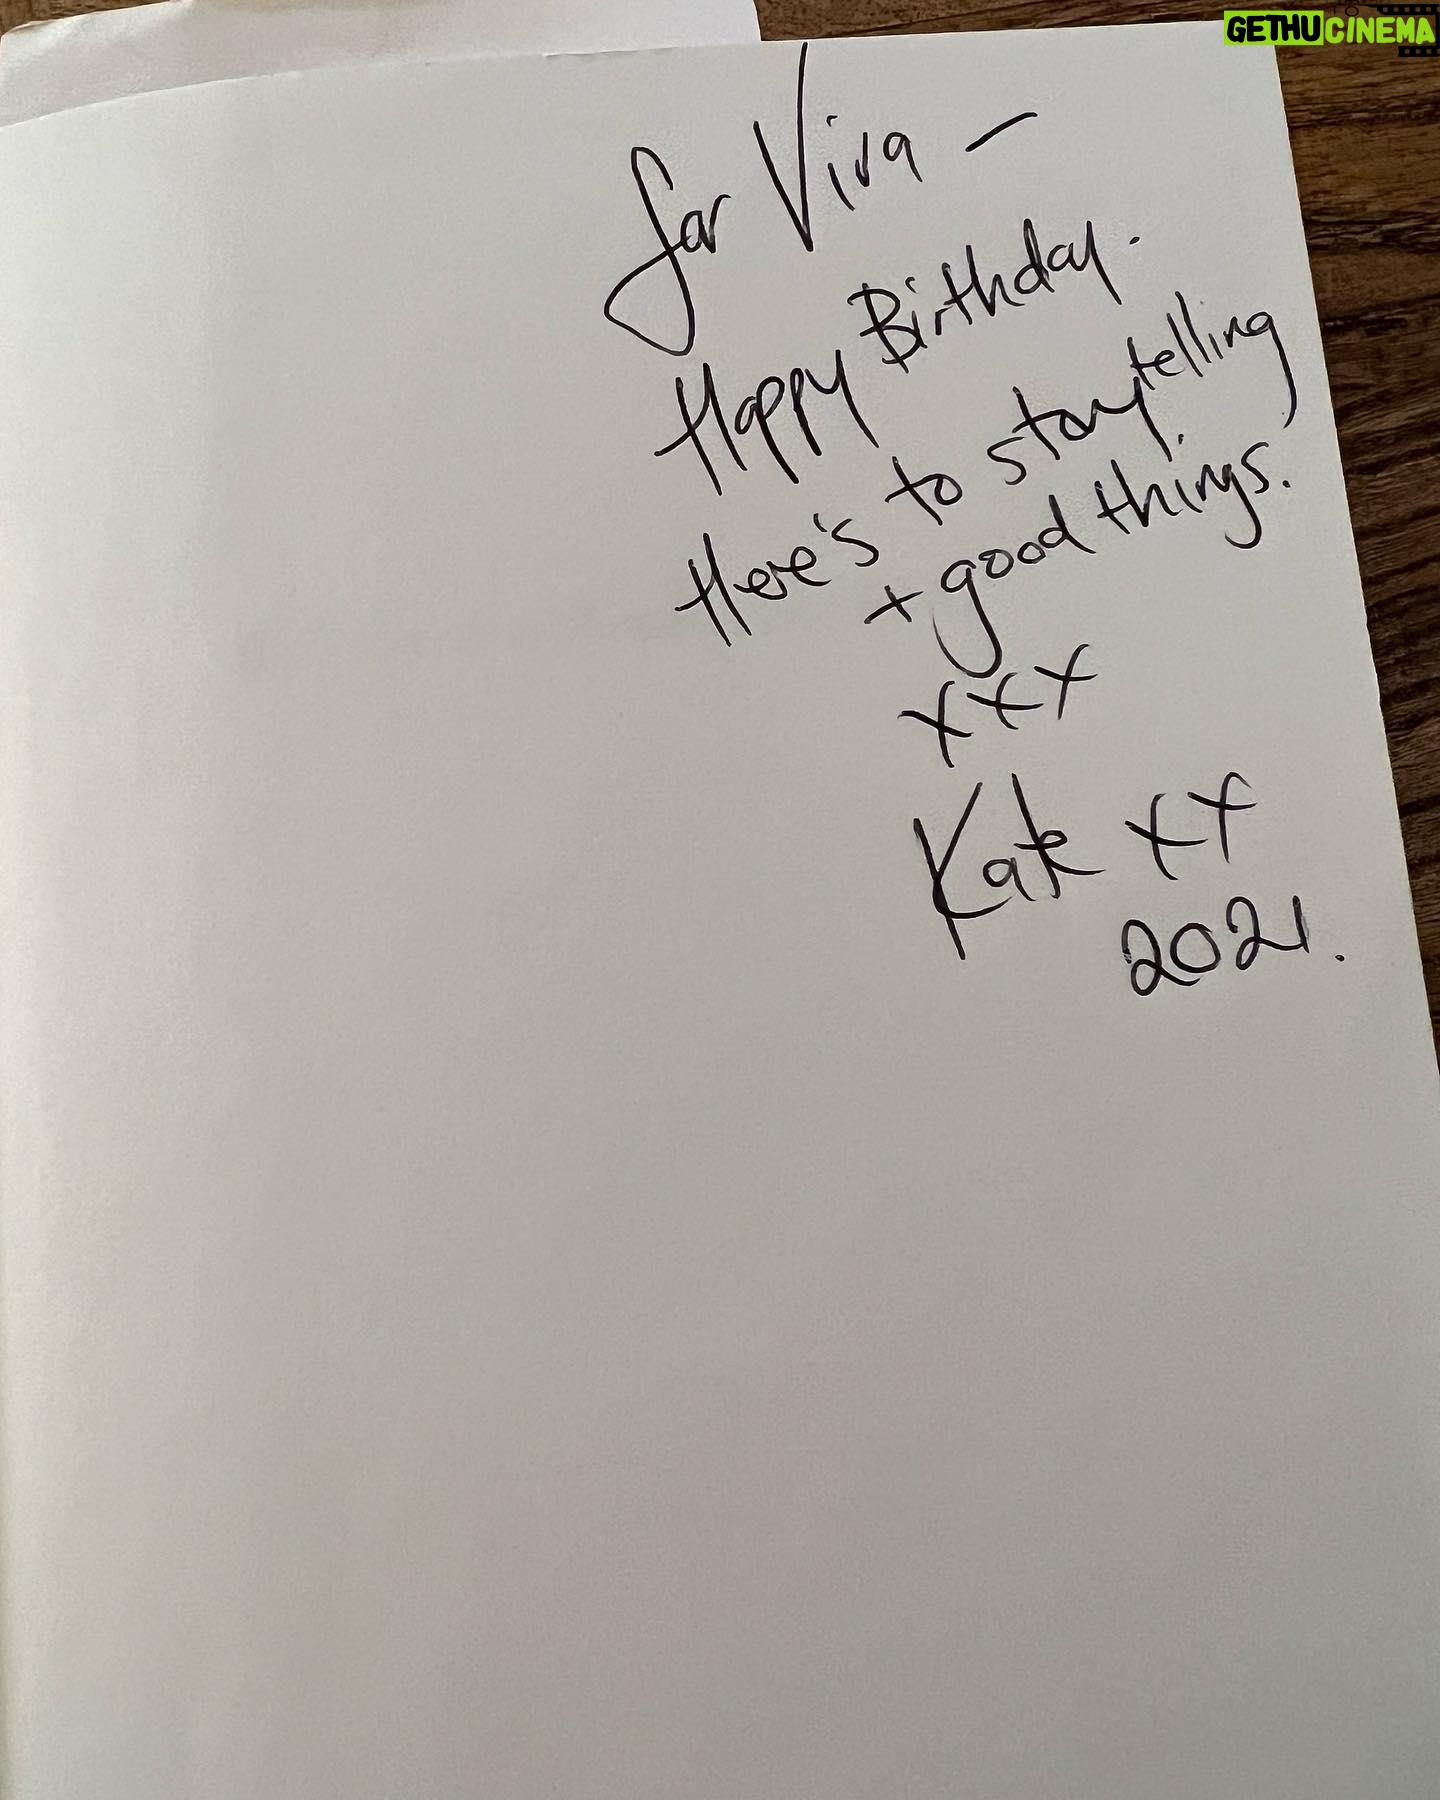 GETHUCINEMA
for Viva —
Happy Birthday.
Here's to storytelling
+ good things.
xxx
Kate xx
2021.